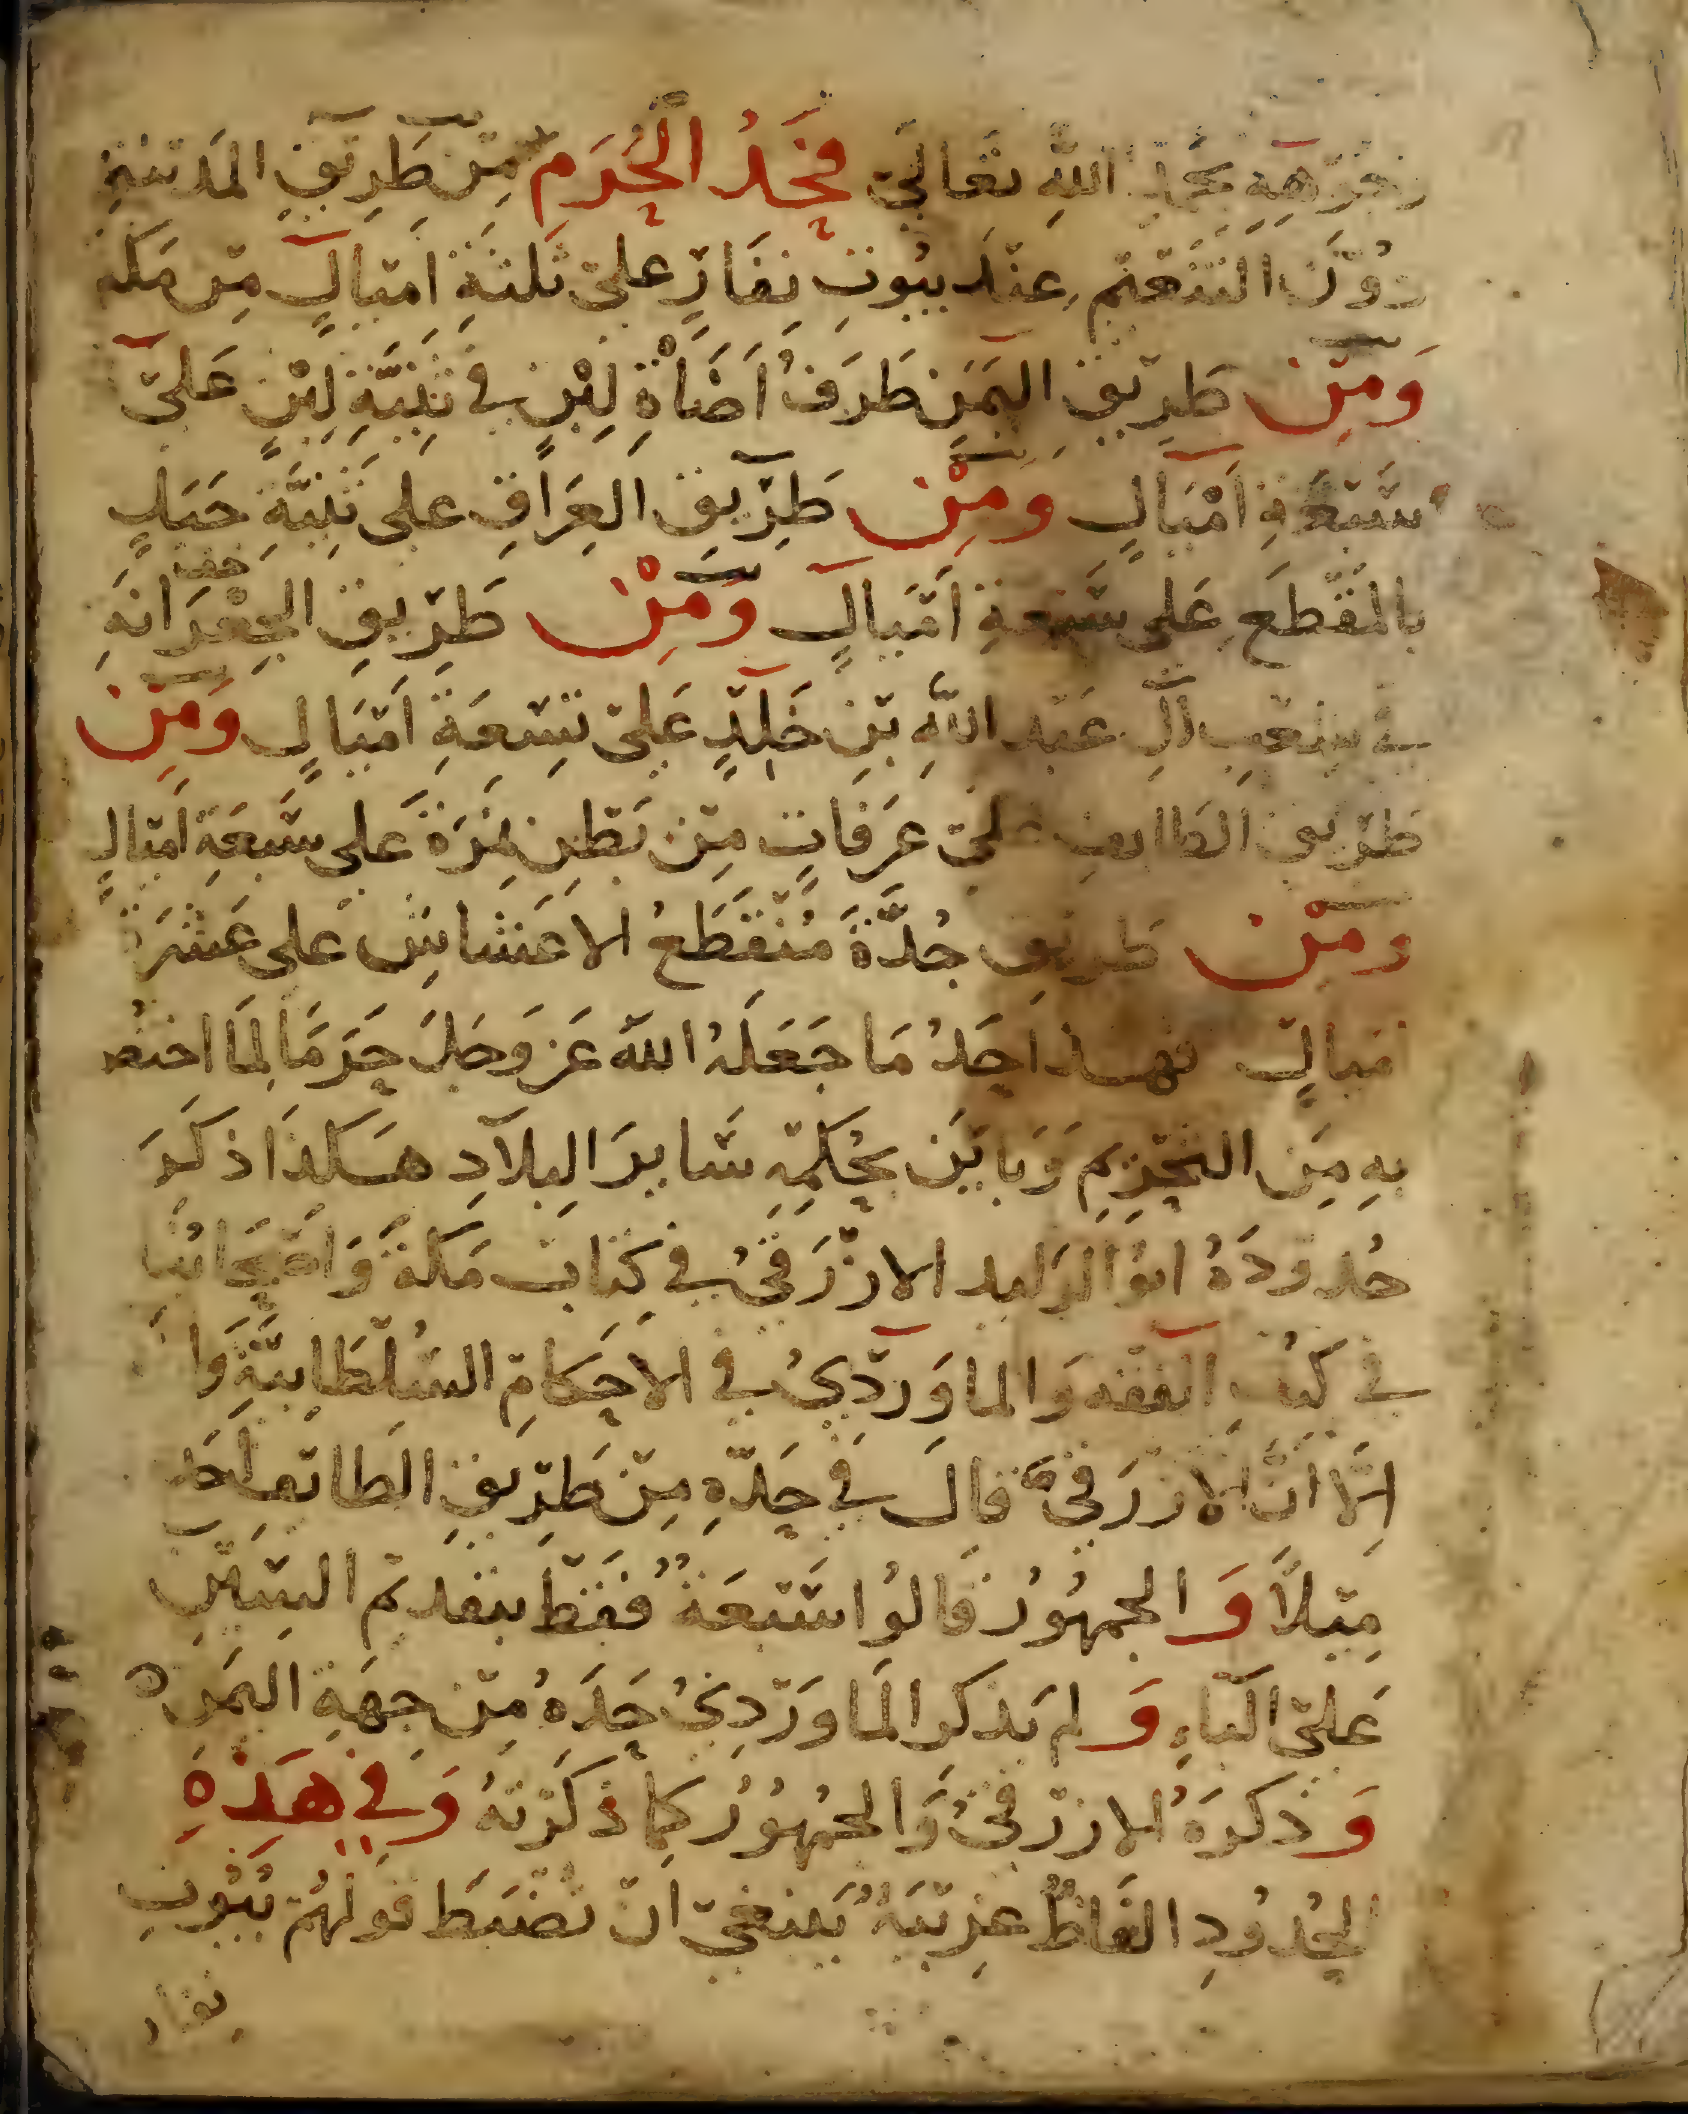 وجوهه بحمد اللّه تعالى فَحَدُّ الْحَرَمِ مِنْ طَرِيقِ المَدينَةِ
دُوْنَ التَّنْعِيْمِ عِنْدَ بيُوتِ نِفَارٍ عَلىَ ثَلثَةِ اَمْيَالٍ مِنْ مَكة
وَمِنْ طَرِيْقِ اليَمَنِ طَرَفُ اَضَاْةِ لِبْنٍ فِي ثَنِيَّةِ لِبْنٍ عَلىَ
سَبْعَةِ اَمْيَالٍ وَمِنْ طَرِيْقِ العِرَاقِ على ثَنِيَّةِ جَبَلٍ
بالمَقْطَعِ عَلى سَبْعةِ اَمْيَالٍ وَمِنْ طَرِيْقِ الجِعْرَانَةِ
خف
في شِعْبِ آلِ عَبْدِ اللّهِ بْنِ خَالِدٍ عَلىَ تِسْعَةِ اَمْيَالٍ وَمِنْ
طَرِيْقِ الطَايفِ علىَ عَرَفَاتٍ مِنْ بَطْنِ نَمِرَةَ عَلى سَبعَةِ اَمْيَالٍ
وَمِنْ طَرِيْقِ جُدَّةَ مُنْقَطَعُ الاَعْشَاشِ عَلى عَشَرَةِ
اَميالٍ فهذا حَدُّ مَا جَعَلَهُ اللّه عَزَّ وَجَلَّ حَرَمًا لِمَا اختُصَّ
بِهِ مِنَ التَحْرِيْمِ وَبَايَنَ بِحُكْمِهِ سَايرَ البِلاَدِ هَكذَا ذكَرَ
حُدودَهُ ابوُ الوَلِيد الازْرَقيُّ فِي كِتَاب مَكةَ وَاَصْحَابُنا
في كتُبِ الفقهِ وَالماوَرْدِيُّ في الاَحكَامِ السُلْطَانيَّةِ وَا
اِلَّا انَّ الاَزرَقيَّ قالَ فِي حَدِّهِ مِنْ طَرِيْقِ الطَائف اَحَد
مِيْلاً وَالجمهُورُ قَالوُا سَبْعَةٌ فقَطْ بتقديْم السِّيْنِ
عَلىَ البَاءِ وَلم يَذكرِ المَاوَرْدِيُّ حَدَّهُ مِنْ جِهَةِ اليَمَنِ
وَذكرَهُ الازرَقيُّ وَالجمهُوُرُ كما ذكَرْتهُ وَفِي هَذِهِ
الحُدُودِ الفَاظٌ غَرِيْبَةٌ يَنبَغيْ انْ تُضبَطَ قَولهُمْ بُيُوتِ
نفار